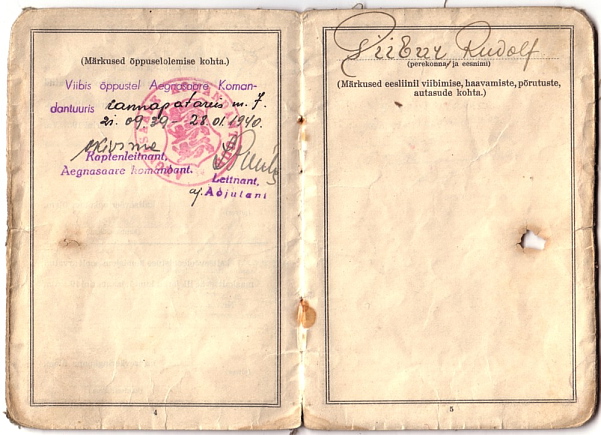 (Märkused õppuselolemise kohta.)
Viibis õppustel Aegnasaare Koman-
dantuuris rannapatareis m. 7.
21. 09 39 - 28. 01. 1940.
Kaptenleitnant,
Aegnasaare komandant.
Leitnant,
aj. Adjutant
4
Piibur Rudolf
(perekonna- ja eesnimi)
(Märkused eesliinil viibimise, haavamiste, põrutuste,
autasude kohta.)
5